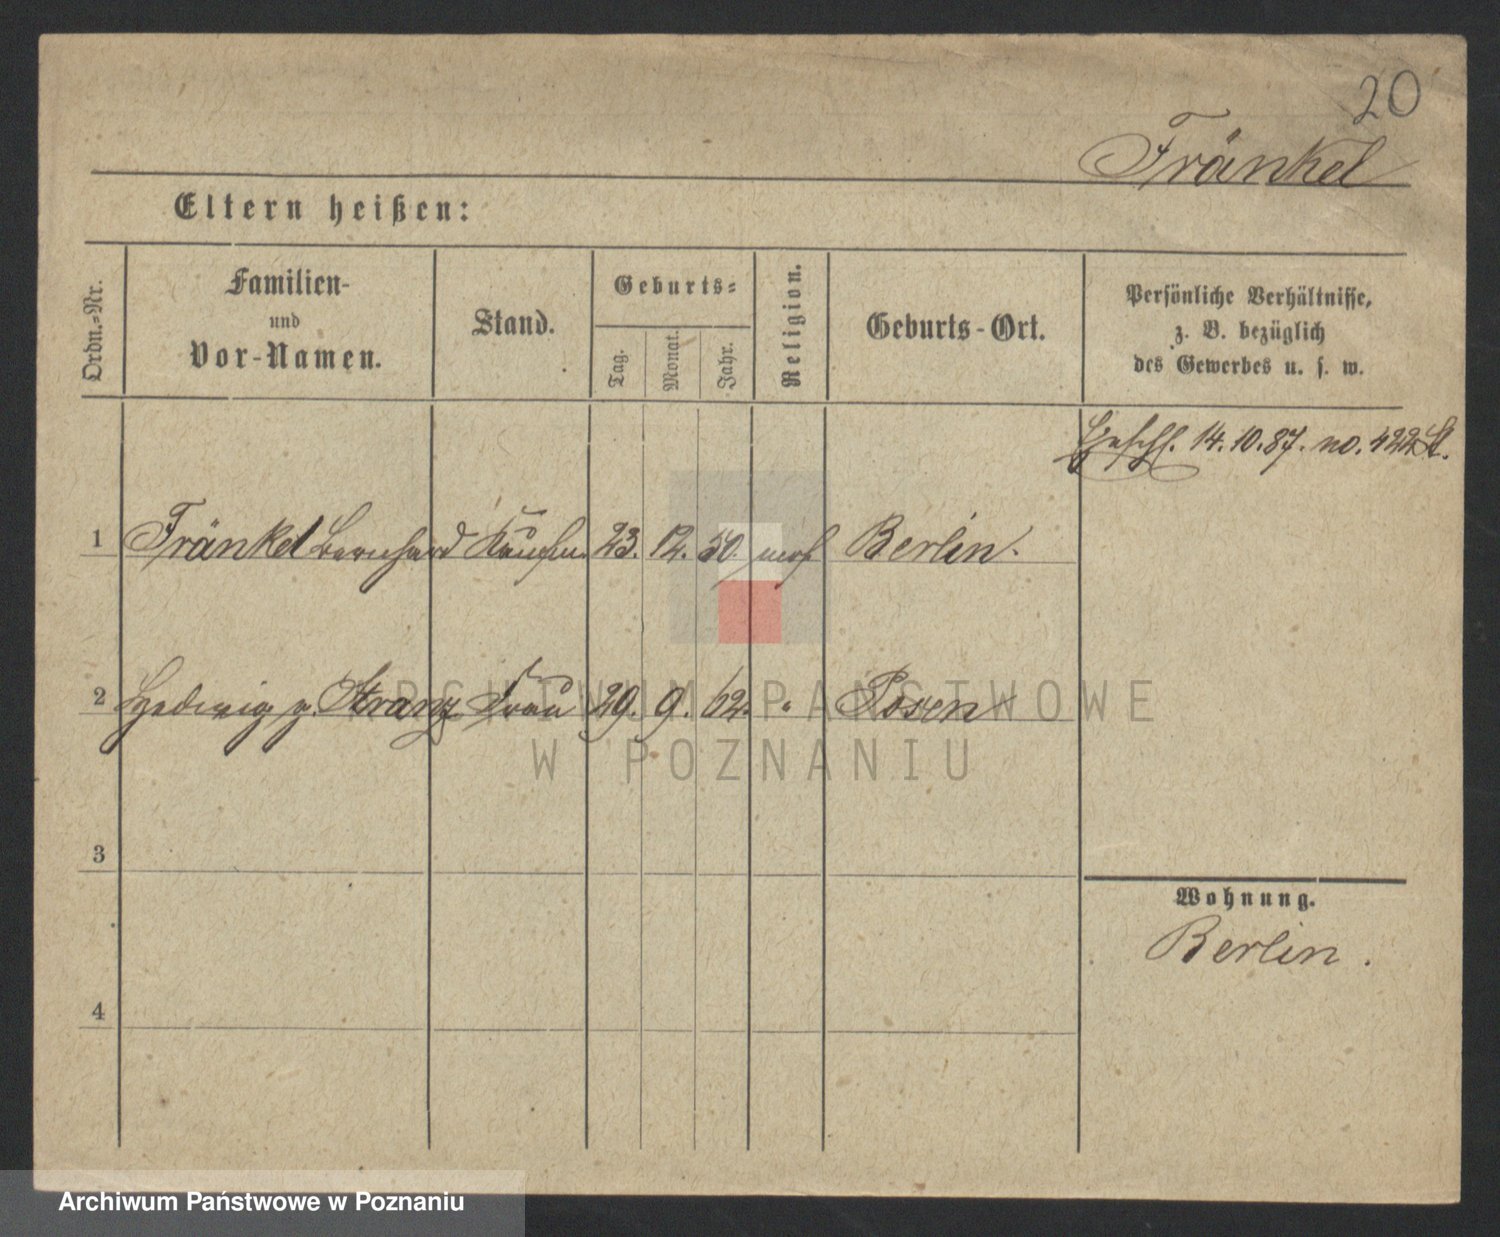 20
Fränkel
Eltern heißen:
Ordn.-Nr.
Familien-
und
Vor-Namen.
Stand.
Geburts-
Tag.
Monat.
Jahr.
Religion.
Geburts-Ort.
Persönliche Verhältnisse,
z. B. bezüglich
des Gewerbes u. s. w.
Ehesch. 14.10.87. no. 422 St.
1 Fränkel Bernhard Kaufm. 23. 12. 50. mos Berlin.
2 Hedwig g. Kranz Frau 29. 9. 62. " Posen
ARCHIWUM PAŃSTWOWE
W POZNANIU
3
Wohnung.
Berlin.
4
Archiwum Państwowe w Poznaniu